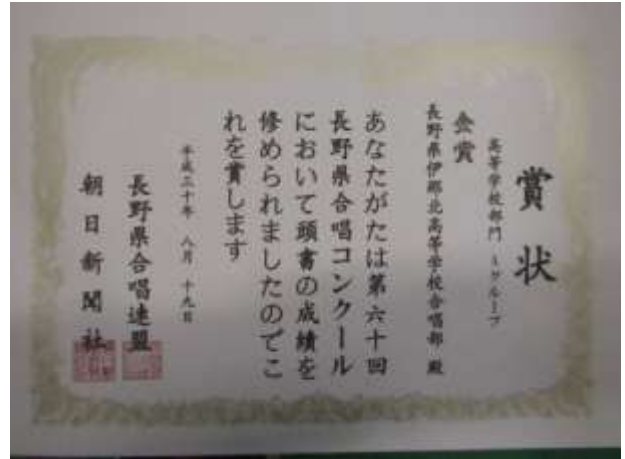 賞状
高等学校部門 Aグループ
金賞
長野県伊那北高等学校合唱部 殿
あなたがたは第六十回
長野県合唱コンクール
において頭書の成績を
修められましたのでこ
れを賞します
平成二十年 八月 十九日
長野県合唱連盟
朝日新聞社